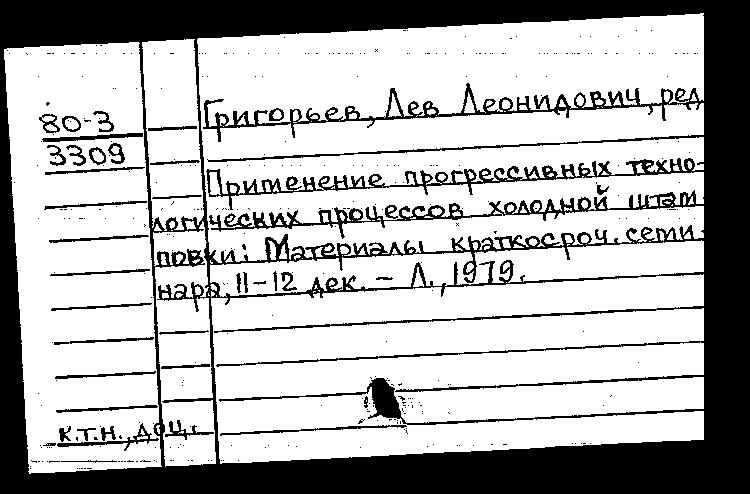 80-3
3309
Григорьев, Лев Леонидович, ред
Применение прогрессивных техно-
логических процессов холодной штам
повки: Материалы краткосроч. семи-
нара, 11-12 дек. - Л., 1979.
к.т.н., доц.